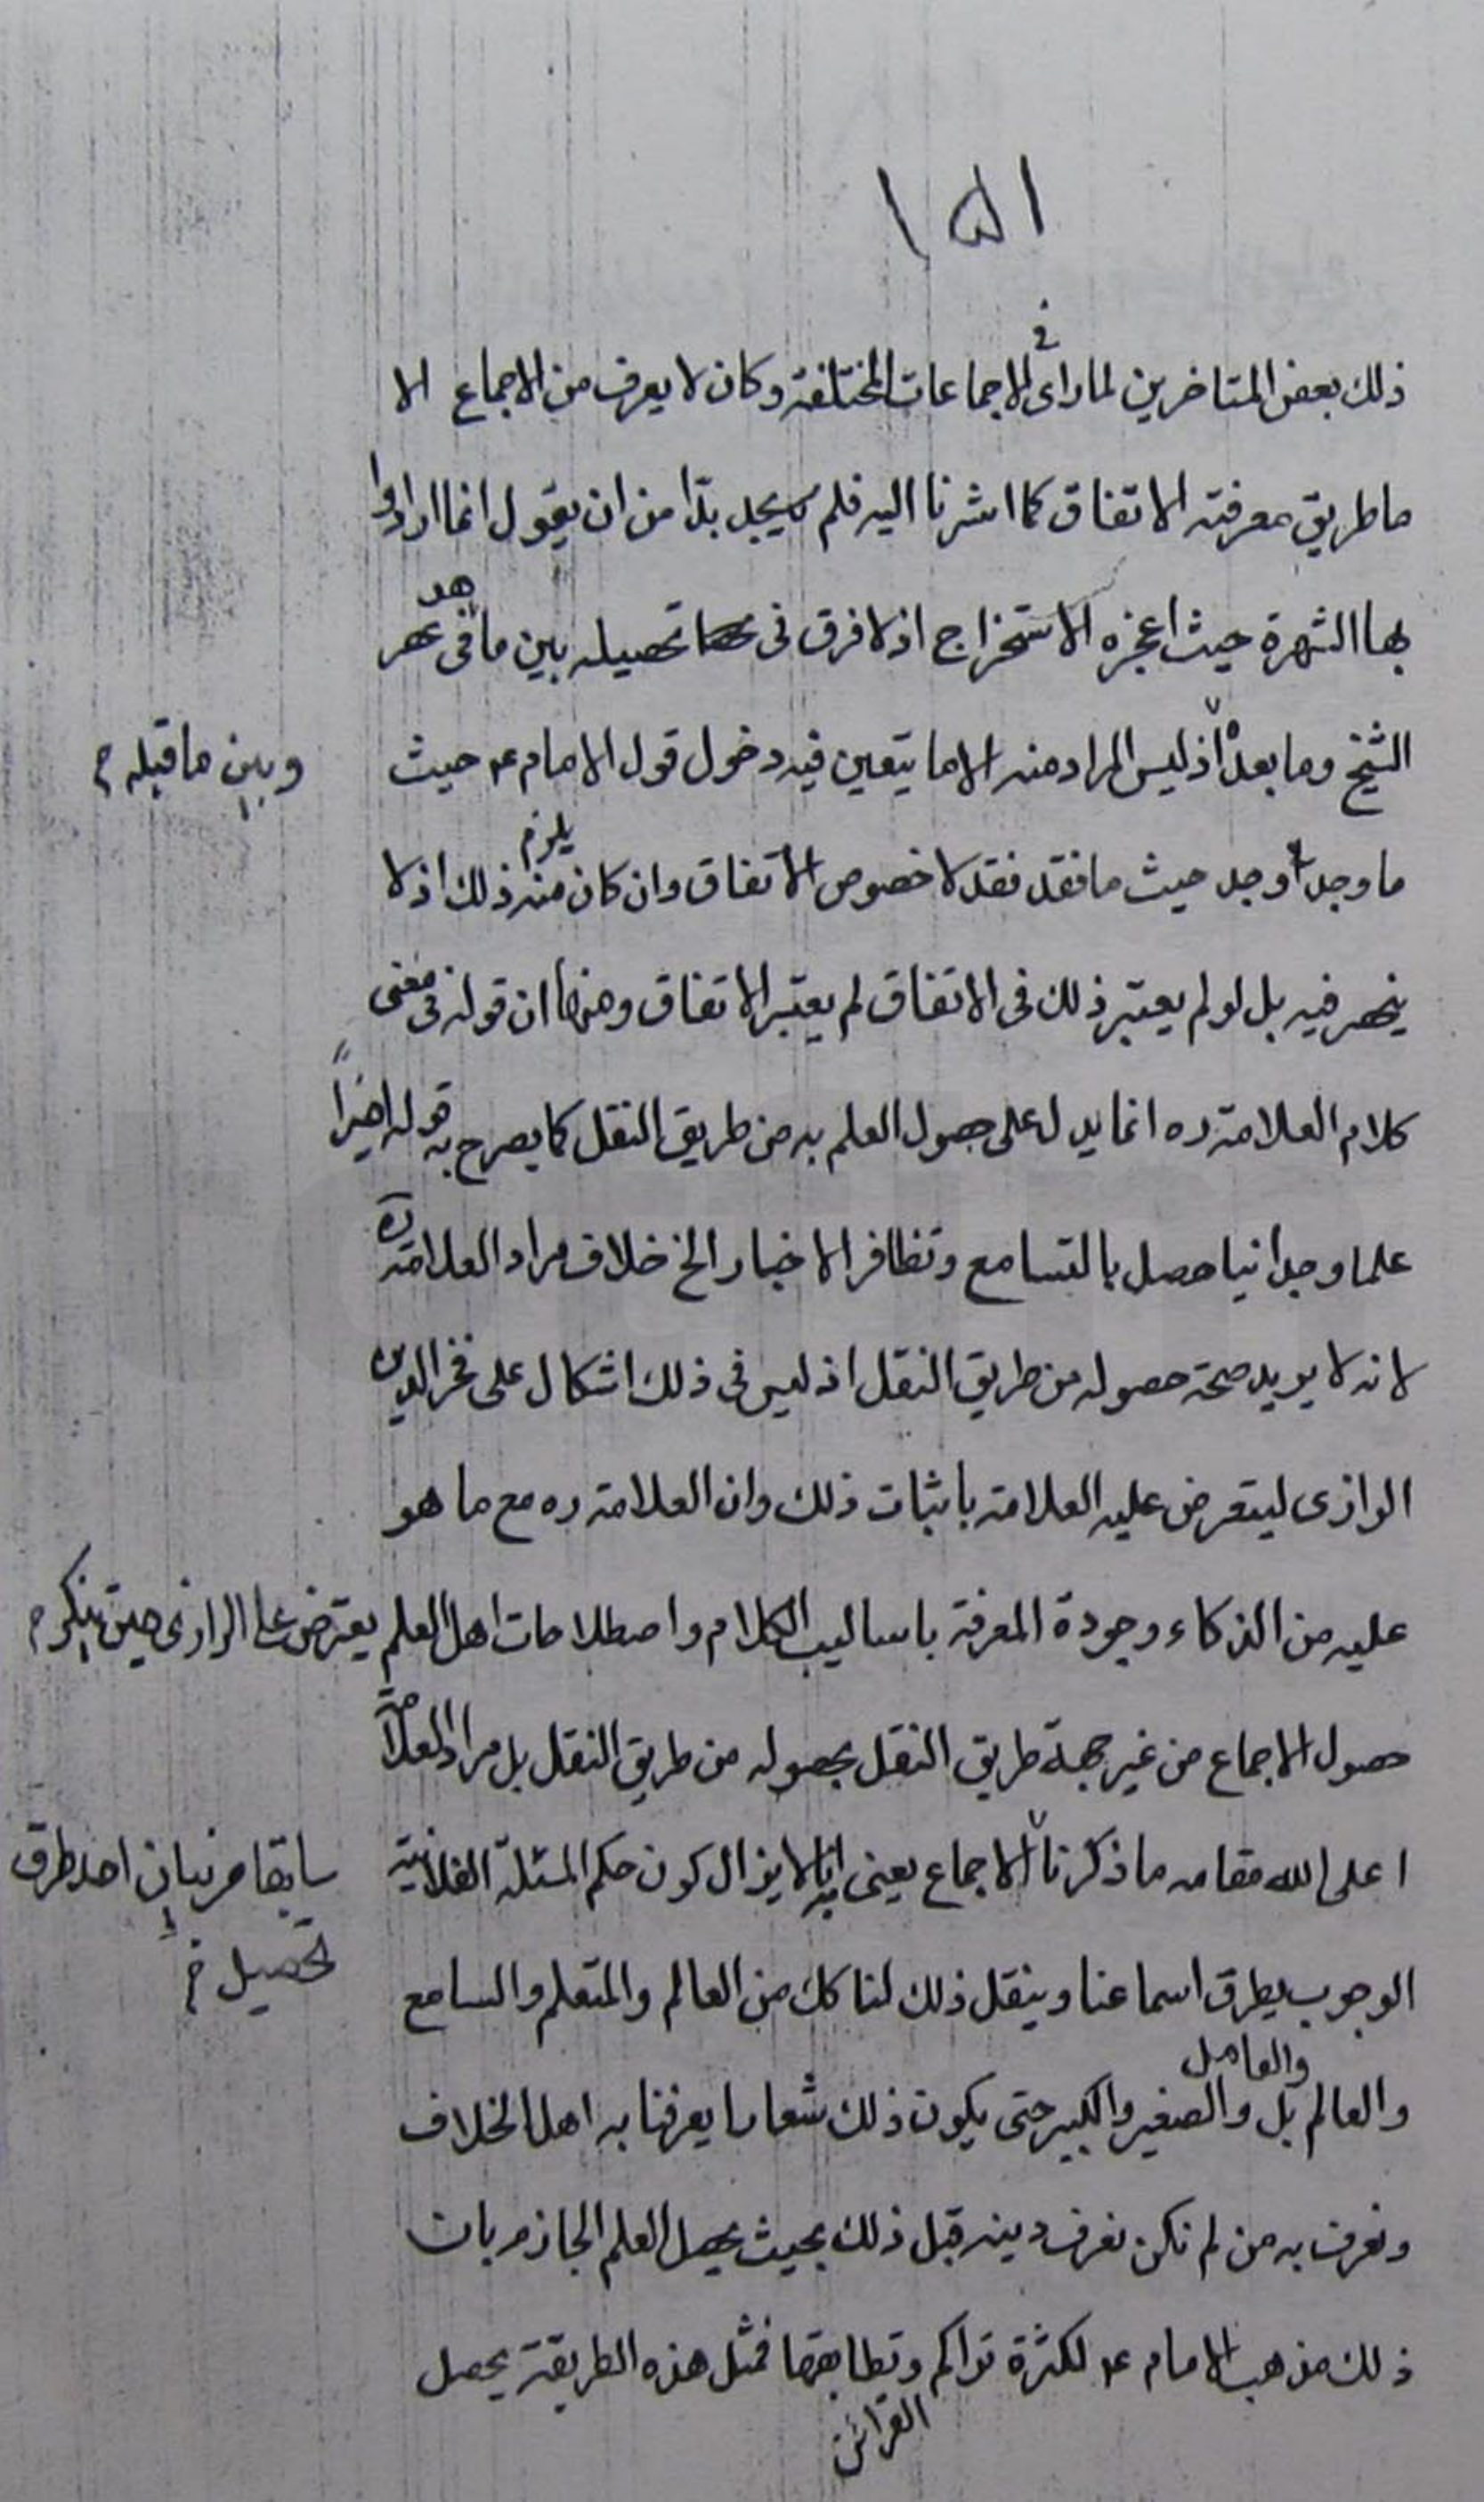 ١٥١
في
ذلك بعض المتاخرين لما راى الاجماعات المختلفة وكان لا يعرف من الاجماع الا
ما طريق معرفته الاتفاق كما اشرنا اليه فلم يجد بدّا من ان يقول انما ارادوا
بها الشهرة حيث اعجزه الاستخراج اذ لا فرق في تحصيله بين ما في عصر
الشيخ وما بعده اذ ليس المراد منه الا ما يتعين فيه دخول قول الامام ع حيث
وبين ما قبله
ما وجد وجد حيث ما فقد فقد لا خصوص الاتفاق وان كان يلزم منه ذلك اذ لا
ينحصر فيه بل لو لم يعتبر ذلك في الاتفاق لم يعتبر الاتفاق ومنها ان قوله في معنى
كلام العلامة ره انما يدل على حصول العلم به من طريق النقل كما يصرح به قوله اخيراً
علما وجدانيا حصل بالتسامع وتظافر الاخبار الخ خلاف مراد العلامة ره
لانه لا يريد صحة حصوله من طريق النقل اذ ليس في ذلك اشكال على فخر الدين
الرازى ليتعرض عليه العلامة باثبات ذلك وان العلامة ره مع ما هو
عليه من الذكاء وجودة المعرفة باساليب الكلام واصطلاحات اهل العلم يعترض على الرازى حين ينكر
حصول الاجماع من غير جهة طريق النقل بحصوله من طريق النقل بل مراد العلامة
اعلى الله مقامه ما ذكرنا الاجماع يعنى انه لا يزال كون حكم المسئلة الفلانية
سابقا من بيان احد طرق
تحصيل
الوجوب يطرق اسماعنا وينقل ذلك لنا كل من العالم والمتعلم والسامع
والعامل
والعالم بل والصغير والكبير حتى يكون ذلك شعارا يعرفنا به اهل الخلاف
ونعرف به من لم نكن نعرف دينه قبل ذلك بحيث يحصل العلم الجازم بان
ذلك مذهب الامام ع لكثرة تراكم وتطابقها فمثل هذه الطريقة يحصل
القرائن